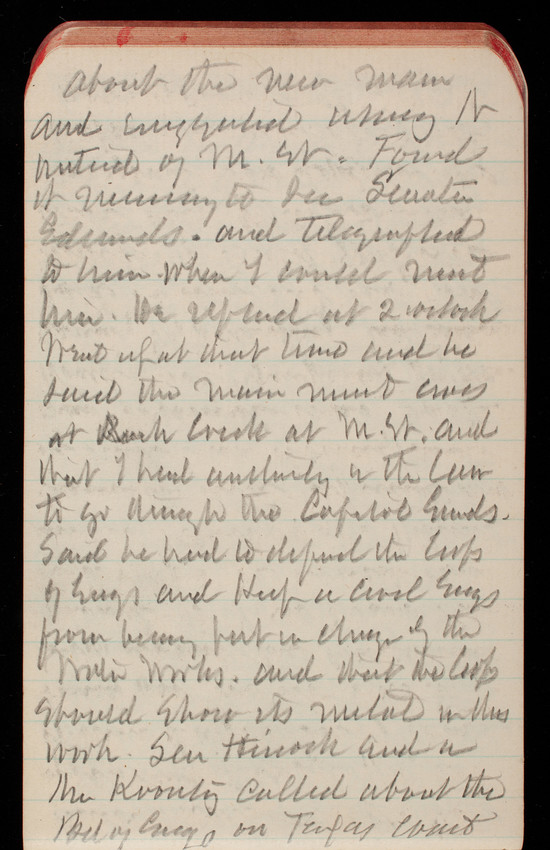 about the new main
and suggested using N
instead of M. St. Found
it necessary to see Senator
Edmunds. and Telegraphed
to him when I could meet
him. He replied at 2 o'clock
Went up at that time and he
said the main must cross
at Rock Creek at M. St. and
that I had authority in the law
to go through the Capitol Grounds.
Said he had to defend the Corps
of Engs and Keep a Civil Engs
from being put in charge of the
Water Works. and that the Corps
should show its metal in this
work. Sen and a
Mr called about the
Bd of Engs on Texas coast